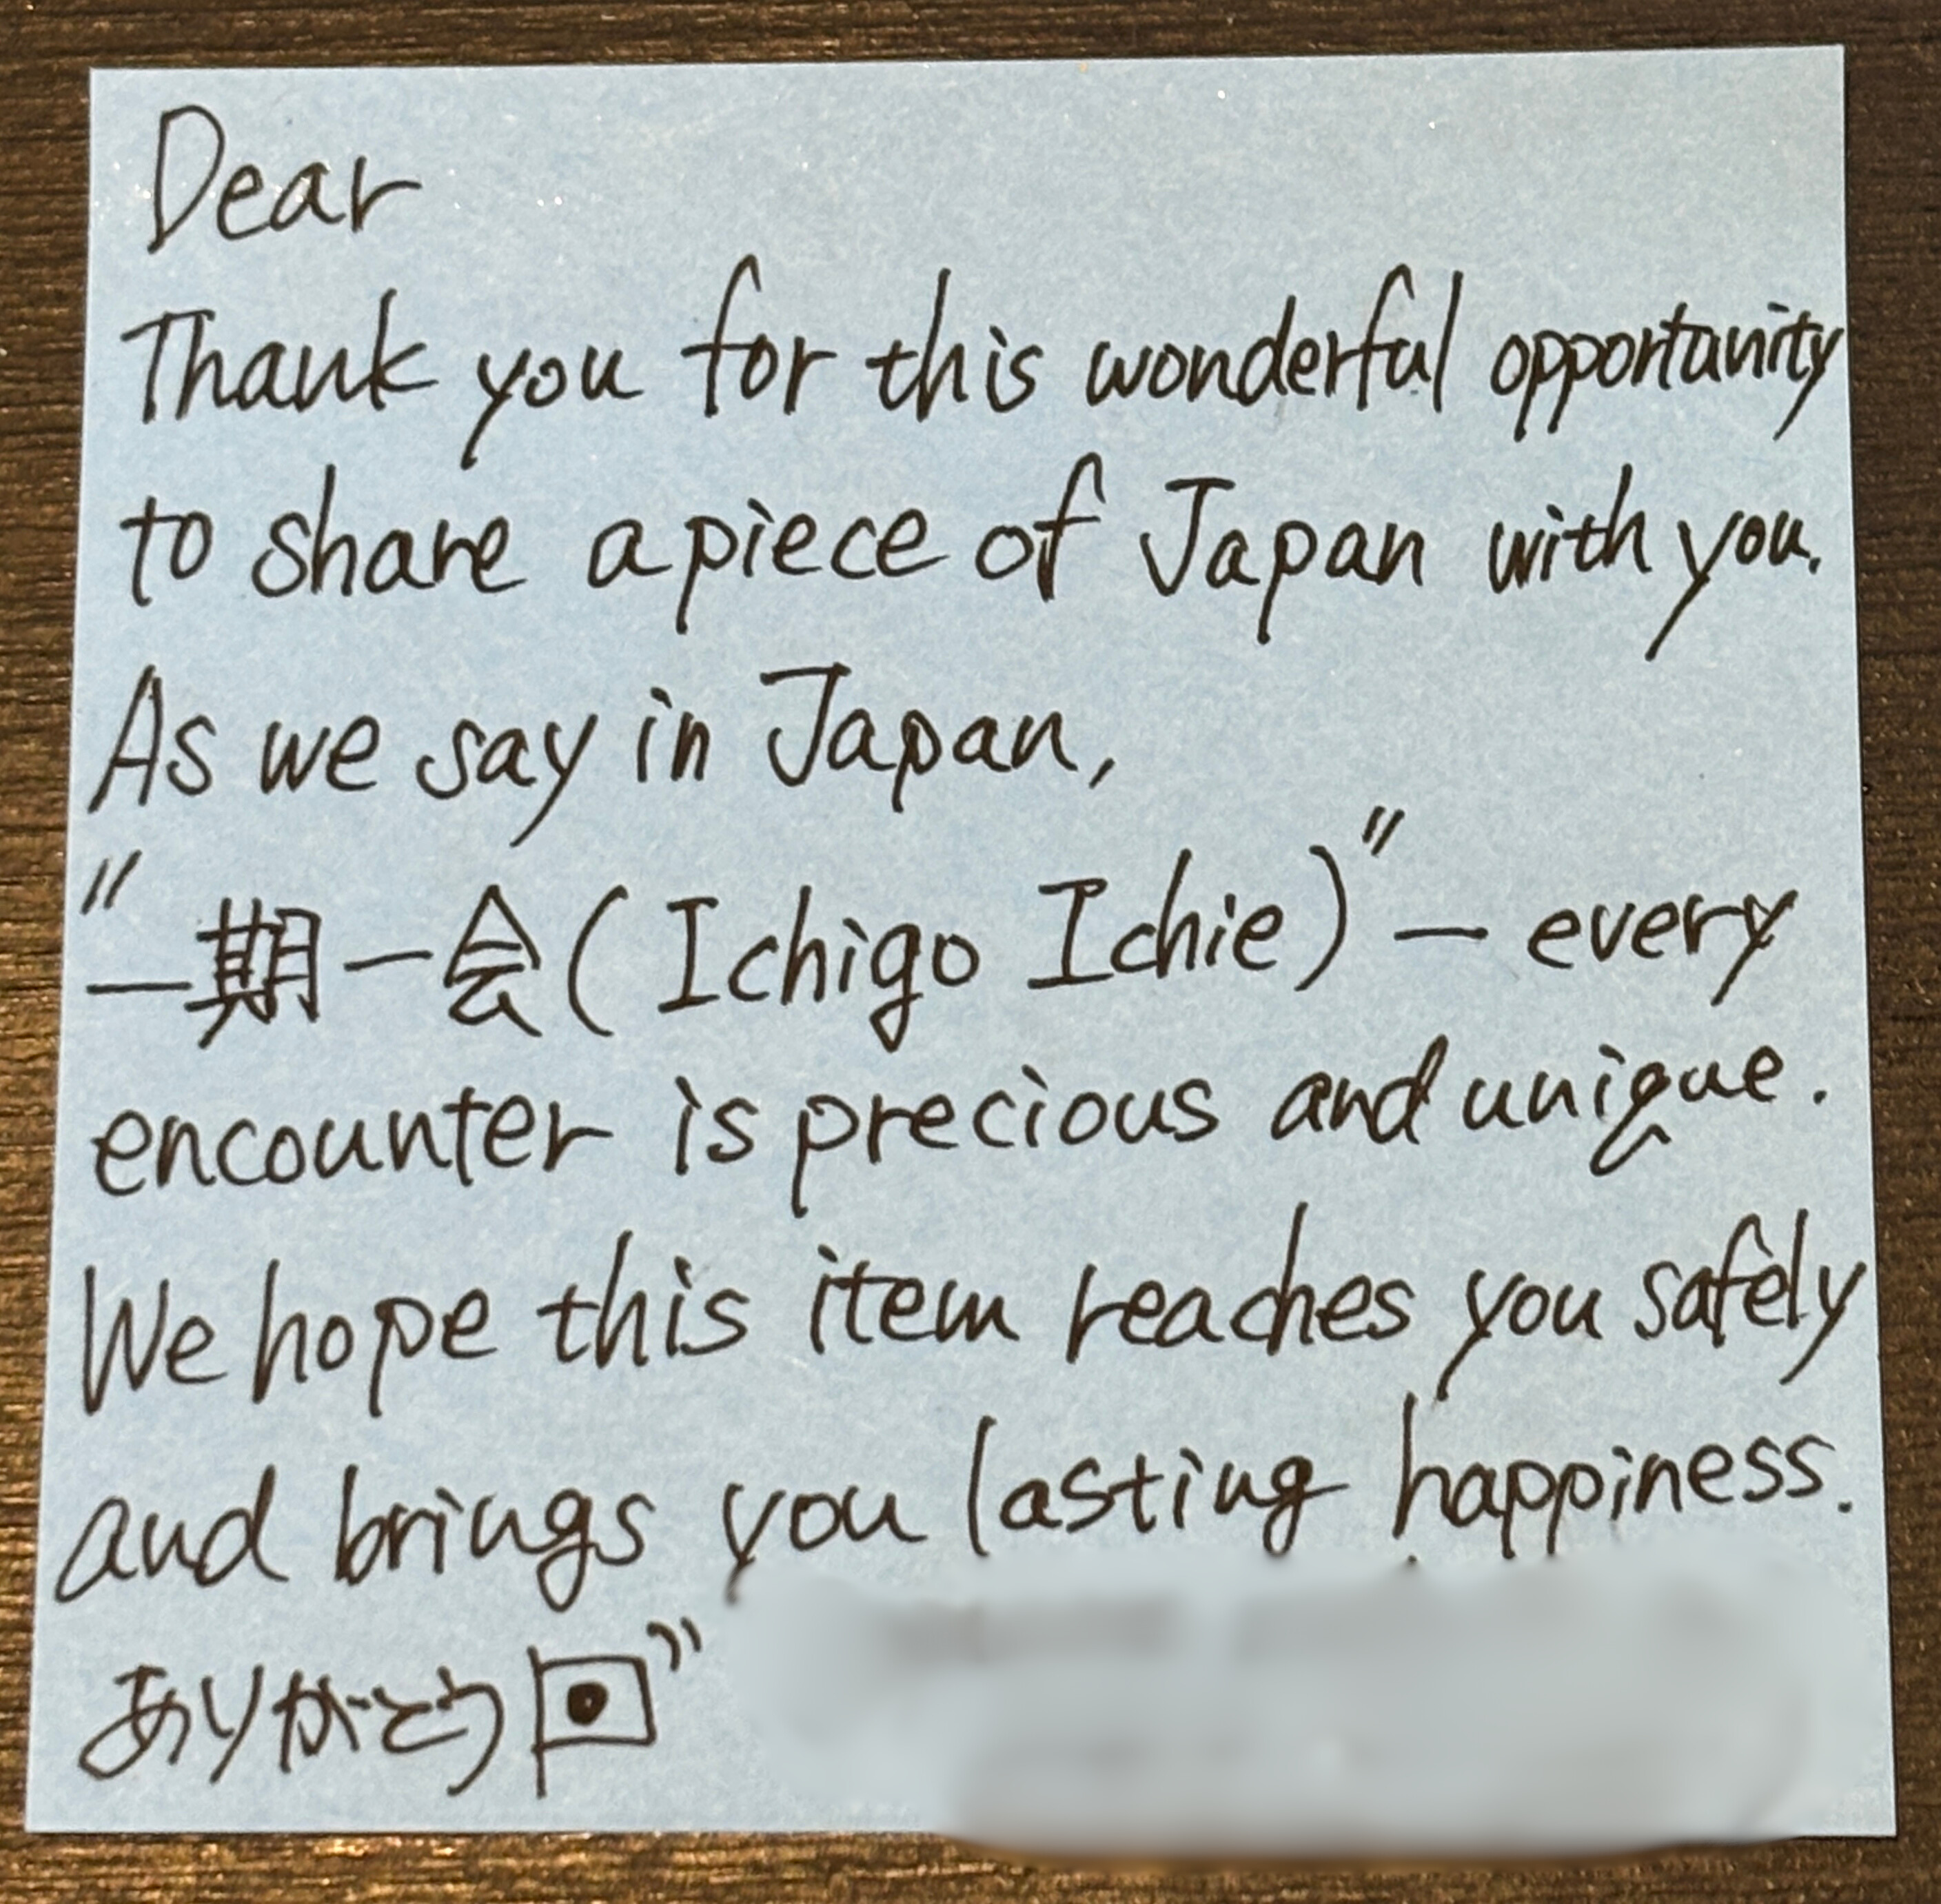 Dear
Thank you for this wonderful opportunity
to share a piece of Japan with you.
As we say in Japan,
"一期一会(Ichigo Ichie)" — every
encounter is precious and unique.
We hope this item reaches you safely
and brings you lasting happiness.
ありがとう